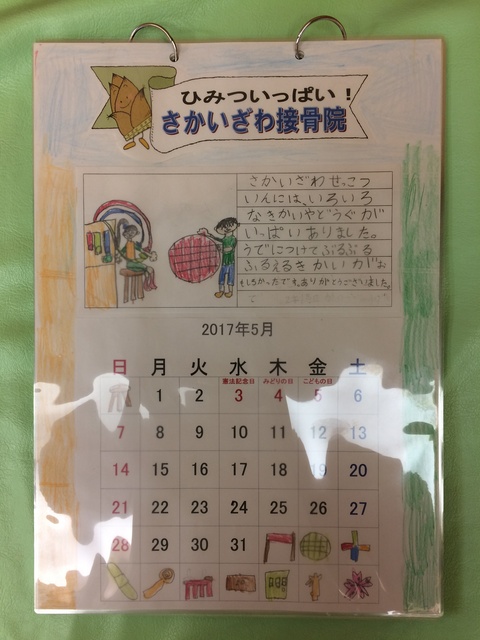 ひみついっぱい！
さかいざわ接骨院
さかいざわせっこつ
いんには、いろいろ
なきかいやどうぐが
いっぱいありました。
うでにつけてぶるぶる
ふるえるきかいがお
もしろかったです。ありがとうございました。
2017年5月
日 月 火 水 木 金 土
憲法記念日 みどりの日 こどもの日
1 2 3 4 5 6
7 8 9 10 11 12 13
14 15 16 17 18 19 20
21 22 23 24 25 26 27
28 29 30 31